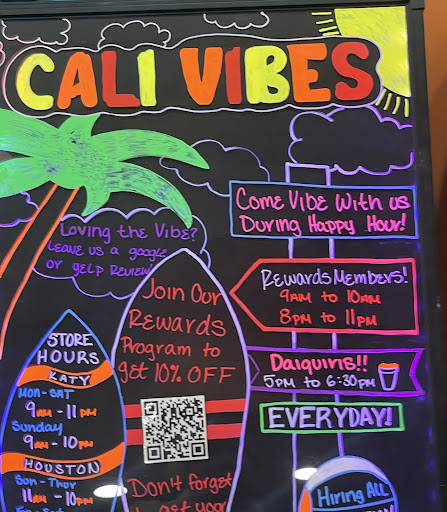 CALI VIBES
Come Vibe With us
During Happy Hour!
Loving the Vibe?
Leave us a google
or yelp Review
Rewards Members!
9AM to 10AM
8PM to 11PM
Join Our
Rewards
Program to
get 10% OFF
Daiquiris!!
5PM to 6:30PM
EVERYDAY!
STORE
HOURS
KATY
Mon - SAT
9AM - 11PM
Sunday
9AM - 10PM
HOUSTON
Sun - Thur
11AM - 10PM
Don't forget
Hiring ALL